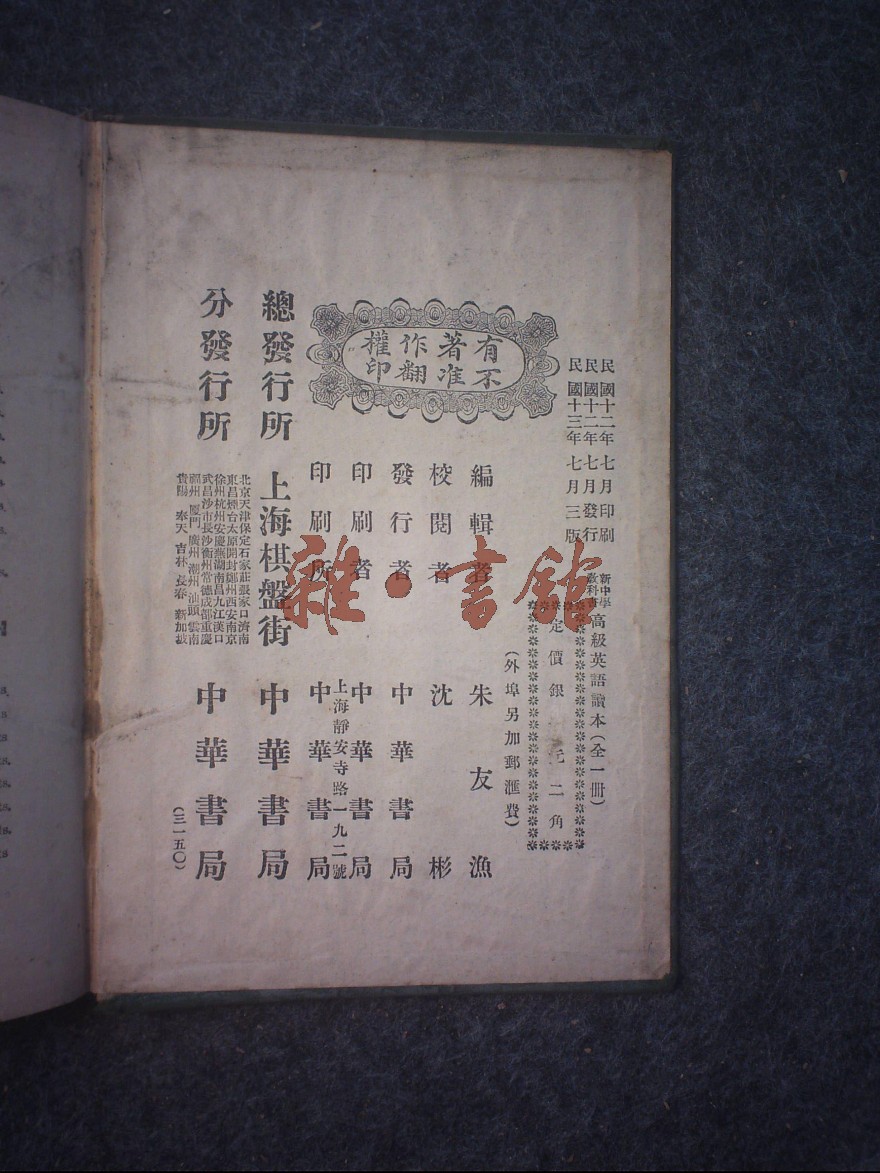 民國十二年七月印刷
民國十二年七月發行
民國十三年七月三版
新中學
教科書
高級英語讀本(全一冊)
定價銀 元二角
(外埠另加郵滙費)
有著作權
不准翻印
編輯者 朱友漁
校閱者 沈彬
發行者 中華書局
印刷者 中華書局
上海靜安寺路一九二號
印刷所 中華書局
總發行所 上海棋盤街 中華書局
分發行所
北京天津保定石家莊張家口濟南
東昌煙台太原開封鄭州西安南京
徐州杭州安慶蕪湖南昌九江漢口
武昌沙市長沙衡州常德成都重慶
福州厦門廣州潮州汕頭雲南
貴陽奉天吉林長春新加坡
中華書局
(三一五〇)
雜·書館